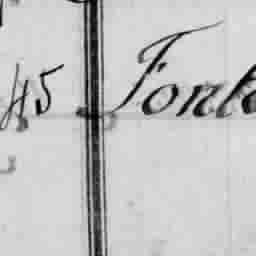 45 Fonte